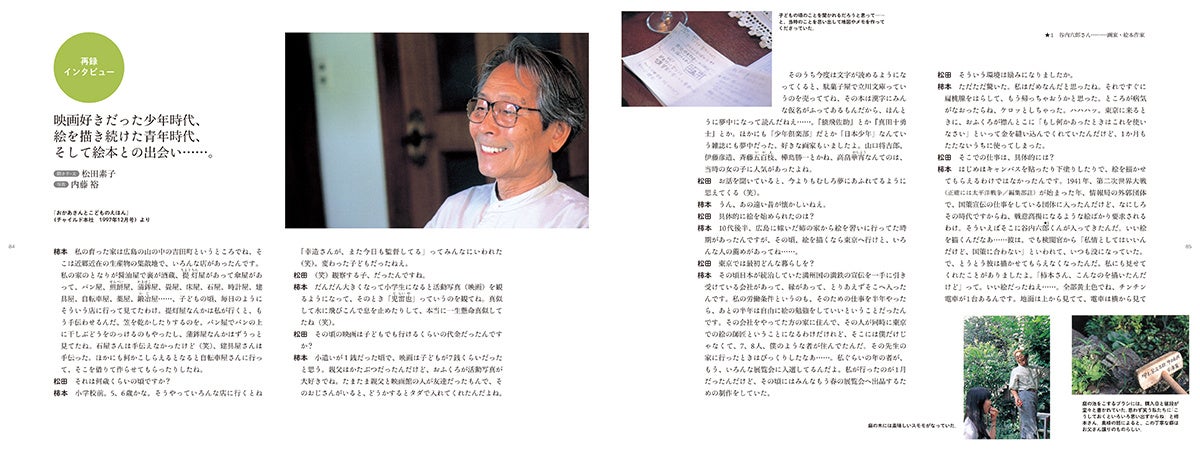 再録
インタビュー
映画好きだった少年時代、
絵を描き続けた青年時代、
そして絵本との出会い……。
聞き手・文 松田素子
写真 内藤 裕
『おかあさんとこどものえほん』
(チャイルド本社 1997年12月号)より
84
柿本 私の育った家は広島の山の中の吉田町というところでね。そ
こは近郷近在の生産物の集散地で、いろんな店があったんです。
私の家のとなりが醤油屋で裏が酒蔵、提灯屋があって傘屋があ
って、パン屋、煎餅屋、蒲鉾屋、畳屋、床屋、石屋、時計屋、建
具屋、自転車屋、薬屋、鍛冶屋……、子どもの頃、毎日のように
そういう店に行って見てたわけ。提灯屋なんかは私が行くと、も
う手伝わせるんだ。笠を乾かしたりするのを。パン屋でパンの上
に干しぶどうをのっけるのもやったし、蒲鉾屋なんかはずうっと
見てたね。石屋さんは手伝えなかったけど(笑)、建具屋さんは
手伝った。ほかにも何かこしらえるとなると自転車屋さんに行っ
て、そこを借りて作らせてもらったりしたね。
松田 それは何歳くらいの頃ですか?
柿本 小学校前。5、6歳かな。そうやっていろんな店に行くとね
「幸造さんが、また今日も監督してる」ってみんなにいわれた
(笑)。変わった子どもだったねえ。
松田 (笑)観察する子、だったんですね。
柿本 だんだん大きくなって小学生になると活動写真(映画)を観
るようになって、そのとき『児雷也』っていうのを観てね。真似
して水に飛びこんで息を止めたりして、本当に一生懸命真似して
たね(笑)。
松田 その頃の映画は子どもでも行けるくらいの代金だったんです
か?
柿本 小遣いが1銭だった頃で、映画は子どもが7銭くらいだった
と思う。親父はかたぶつだったんだけど、おふくろが活動写真が
大好きでね。たまたま親父と映画館の人が友達だったもんで、そ
のおじさんがいると、どうかするとタダで入れてくれたんだよね。
子どもの頃のことを聞かれるだろうと思って……
と、当時のことを思い出して地図やメモを作って
くださっていた。
そのうち今度は文字が読めるようにな
ってくると、駄菓子屋で立川文庫ってい
うのを売っててね、その本は漢字にみん
な仮名がふってあるもんだから、ほんと
うに夢中になって読んだねえ……。『猿飛佐助』とか『真田十勇
士』とか。ほかにも『少年倶楽部』だとか『日本少年』なんてい
う雑誌にも夢中だった。好きな画家もいましたよ。山口将吉郎、
伊藤彦造、斉藤五百枝、樺島勝一とかね。高畠華宵なんてのは、
当時の女の子に人気があったよね。
松田 お話を聞いていると、今よりもむしろ夢にあふれてるように
思えてくるな(笑)。
柿本 うん、あの遠い昔が懐かしいねえ。
松田 具体的に絵を始められたのは?
柿本 10代後半、広島に嫁いだ姉の家から絵を習いに行ってた時
期があったんですが、その頃、絵を描くなら東京へ行けと、いろ
んな人の薦めがあってね……。
松田 東京では最初どんな暮らしを?
柿本 その頃日本が統治していた満州国の満鉄の宣伝を一手に引き
受けている会社があって、縁があって、とりあえずそこへ入った
んです。私の労働条件というのも、そのための仕事を半年やった
ら、あとの半年は自由に絵の勉強をしていいということだったん
です。その会社をやってた方の家に住んで、その人が同時に東京
での絵の師匠ということになるわけだけれど、そこには僕だけじ
ゃなくて、7、8人、僕のような者が住んでたんだ。その先生の
家に行ったときはびっくりしたなあ……。私ぐらいの年の者が、
もう、いろんな展覧会に入選してるんだよ。私が行ったのが1月
だったんだけど、その頃にはみんなもう春の展覧会へ出品するた
めの制作をしていた。
★1 谷内六郎さん――画家・絵本作家
松田 そういう環境は励みになりましたか。
柿本 ただただ驚いた。私はだめなんだと思ったね。それですぐに
扁桃腺をはらして、もう帰っちゃおうかと思った。ところが病気
がなおったらね、ケロッとしちゃった。ハハハッ。東京に来ると
きに、おふくろが襟んとこに「もし何かあったときはこれを使い
なさい」といって金を縫い込んでくれていたんだけど、1か月も
たたないうちに使ってしまった。
松田 そこでの仕事は、具体的には?
柿本 はじめはキャンバスを貼ったり下塗りしたりで、絵を描かせ
てもらえるわけではなかったんです。1941年、第二次世界大戦
(正確には太平洋戦争/編集部註)が始まった年、情報局の外郭団体
で、国策宣伝の仕事をしている団体に入ったんだけど、なにしろ
その時代ですからね、戦意高揚になるような絵ばかり要求される
わけ。そういえばそこに谷内六郎くんが入ってきたんだ。いい絵
を描くんだなあ……彼は。でも検閲官から「私情としてはいいん
だけど、国策に合わない」といわれて、いつも没になっていた。
で、とうとう彼は描かせてもらえなくなったんだ。私にも見せて
くれたことがありましたよ。「柿本さん、こんなのを描いたんだ
けど」って。いい絵だったねえ……。全部黄土色でね、チンチン
電車が1台あるんです。地面は上から見てて、電車は横から見て
85
庭の木には美味しいスモモがなっていた。
庭の池をこするブラシには、購入日と値段が
堂々と書かれていた。思わず笑う私たちに「こ
うしておくといろいろ思い出すからね」と柿
本さん。奥様の話によると、この丁寧な癖は
お父さん譲りのものらしい。